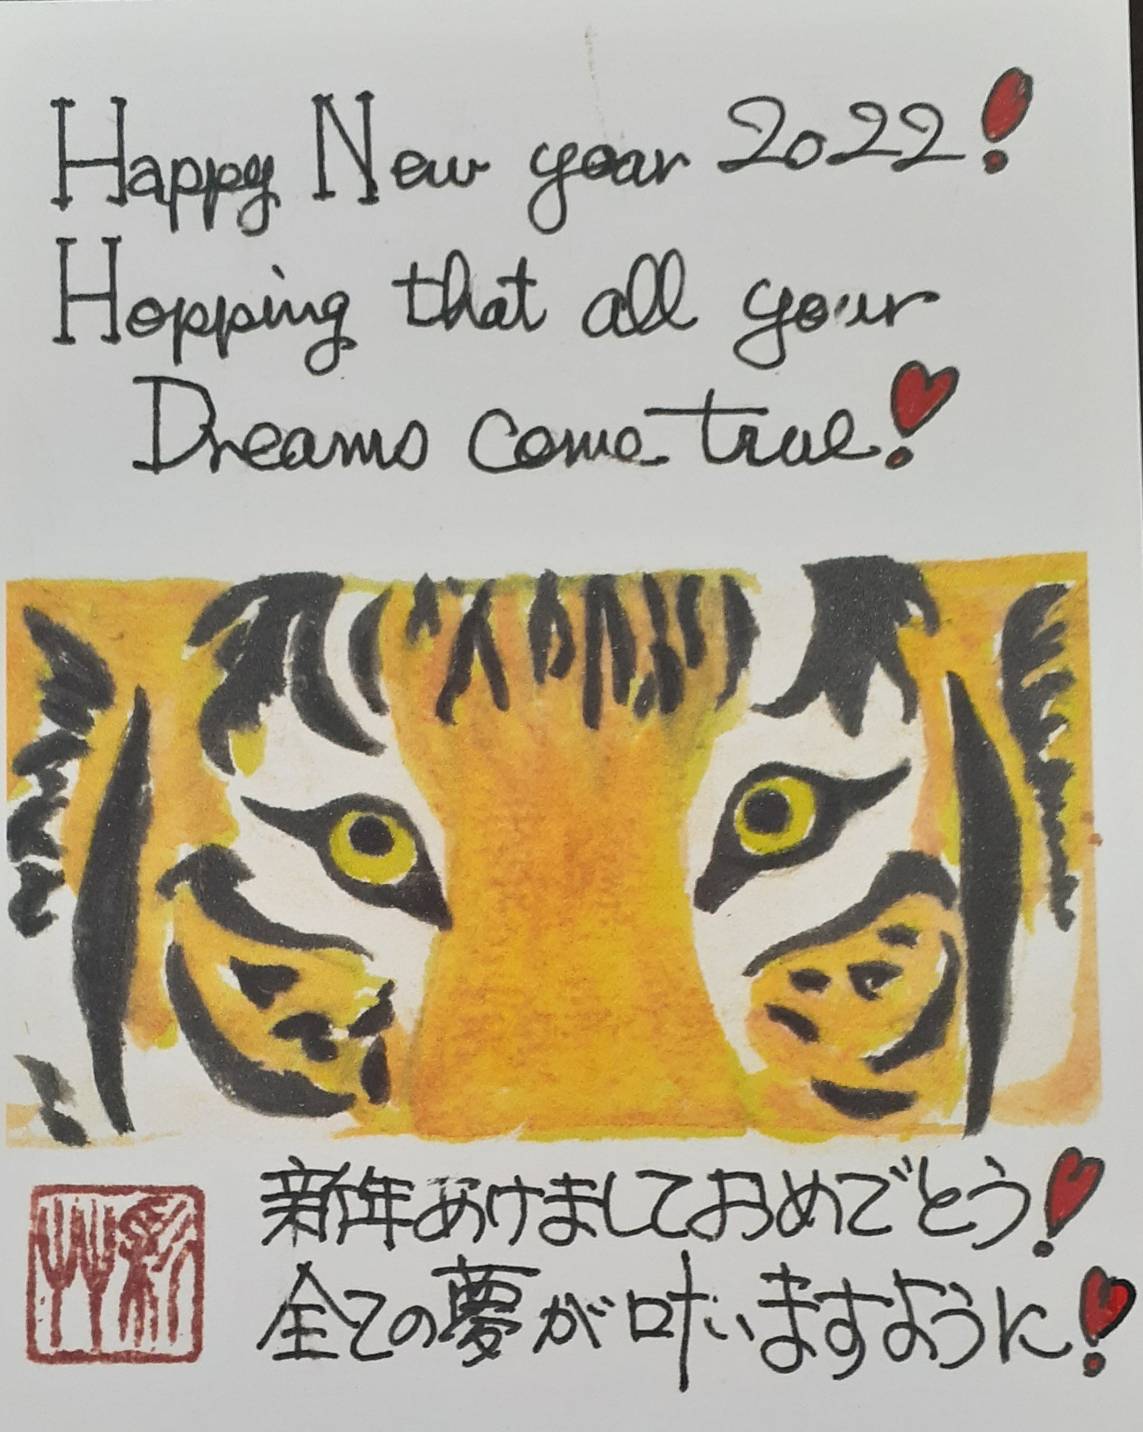 Happy New year 2022!
Hopping that all your
Dreams come true!
新年あけましておめでとう!
全ての夢が叶いますように!